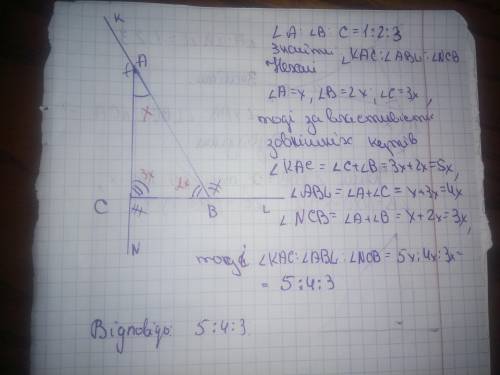 ∠A:∠B:∠C = 1:2:3
Знайти ∠KAC:∠ABL:∠NCB
Нехай
∠A=x, ∠B=2x, ∠C=3x,
тоді за властивістю
зовнішніх кутів
∠KAC = ∠C+∠B=3x+2x=5x,
∠ABL=∠A+∠C= x+3x=4x
∠NCB=∠A+∠B= x+2x=3x,
тоді ∠KAC:∠ABL:∠NCB = 5x:4x:3x=
= 5:4:3
Відповідь: 5:4:3.
K
A
x
3x
2x
C
B
L
N